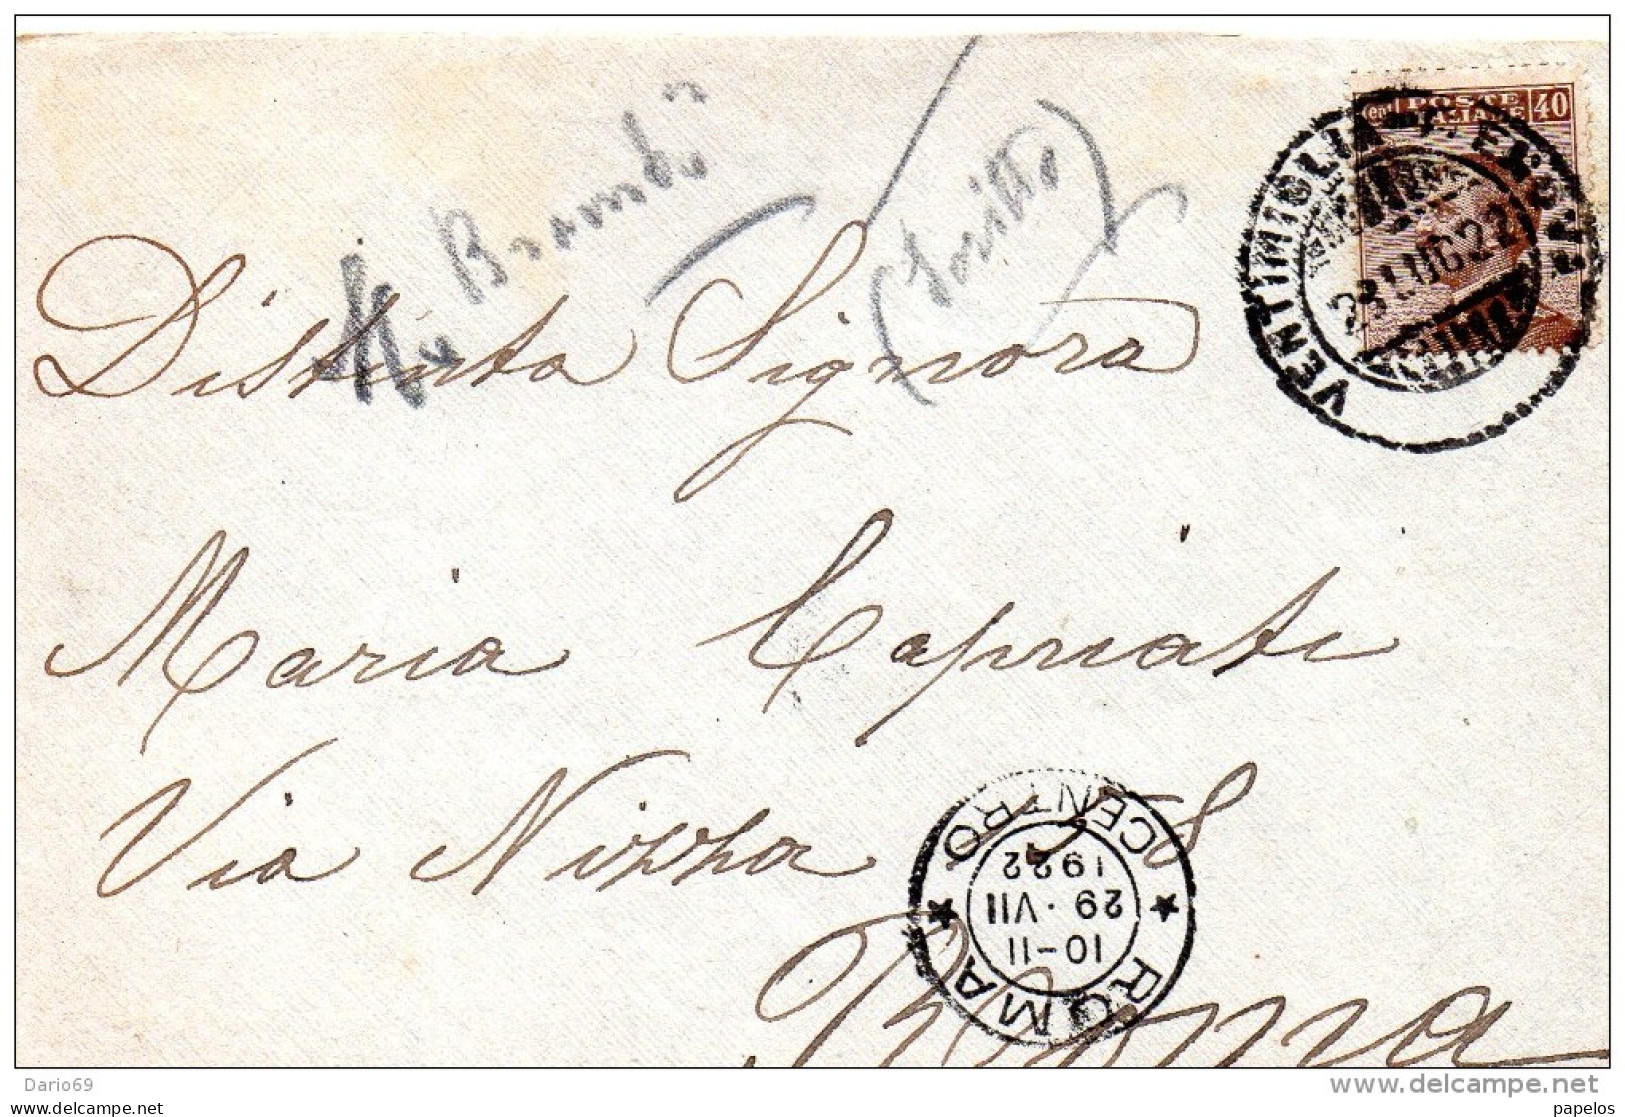 Cent POSTE ITALIANE 40
VENTIMIGLIA
28 LUG 22
Brondi
(Scritto)
Distinta Signora
Maria Capriati
Via Nizza 58
Roma
ROMA CENTRO
10-11
29 · VII
1922
Dario69
www.delcampe.net
papelos